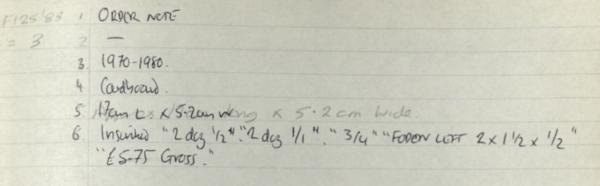 F125 '83 1 ORDER NOTE
= 3 2 —
3 1970-1980.
4 Cardboard.
5. 17cm long x 5.2cm wide.
6 Inscribed "2 dcg 1/2" "2 dcg 1/1". "3/4" "FODEN LEFT 2 x 1 1/2 x 1/2"
"£5-75 Gross."